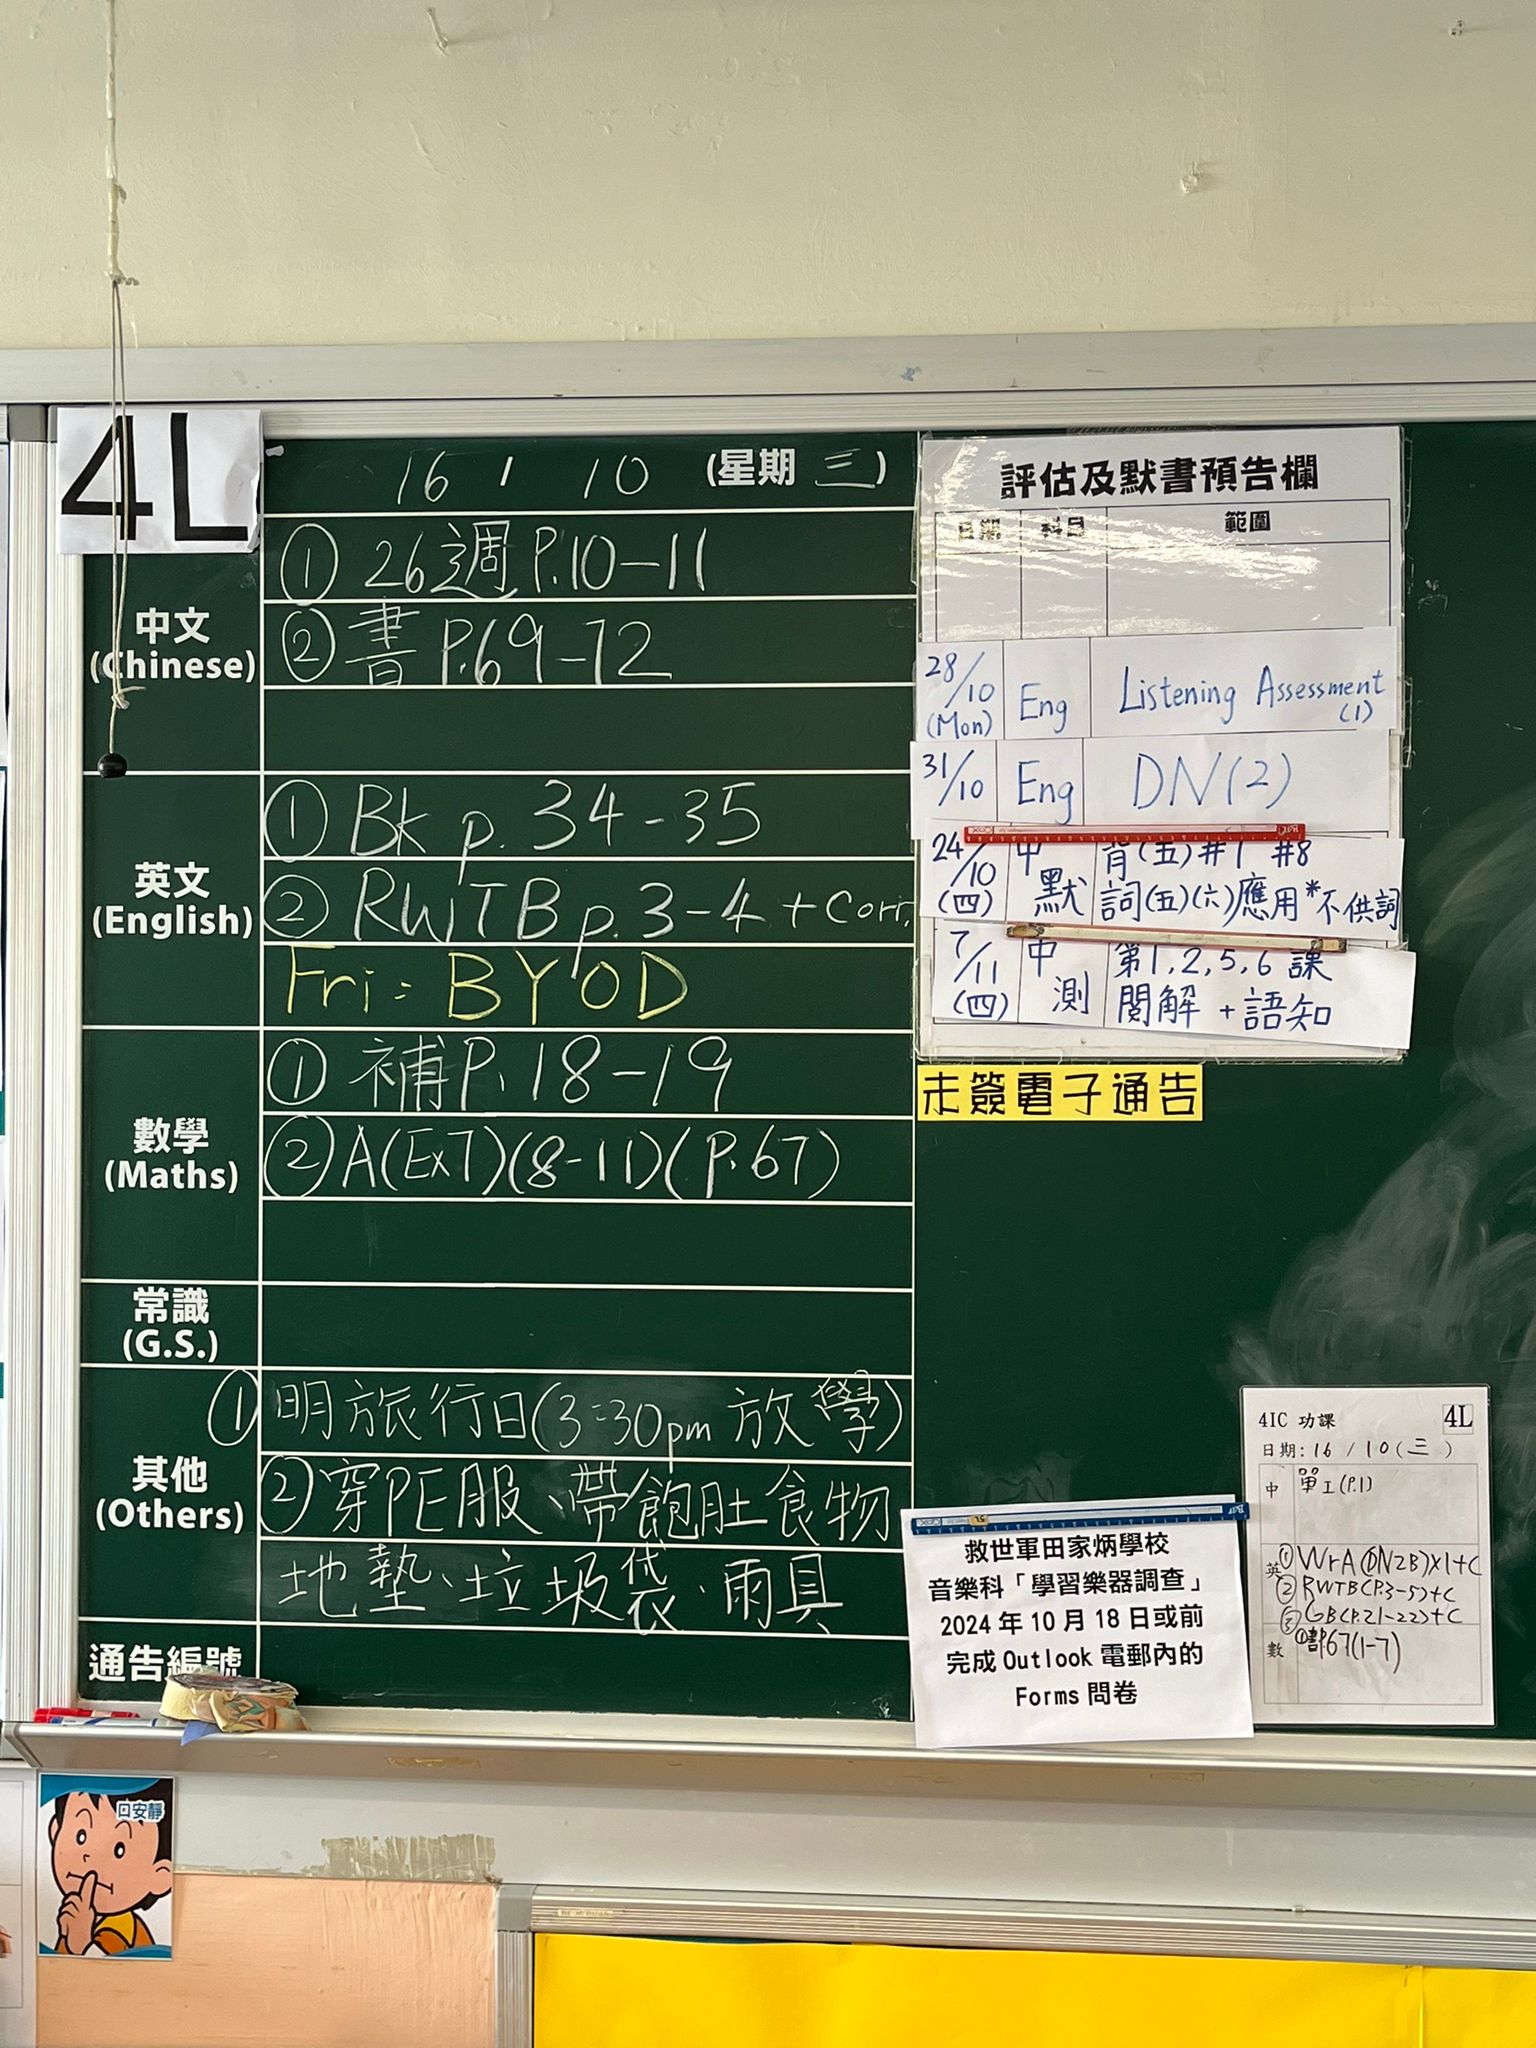 4L
16 / 10 (星期 三)
中文
(Chinese)
① 26週 P.10-11
② 書 P.69-72
英文
(English)
① Bk p. 34-35
② RWTB p. 3-4 + Corr.
Fri: BYOD
數學
(Maths)
① 補P. 18-19
② A(Ex7)(8-11)(P.67)
常識
(G.S.)
其他
(Others)
① 明旅行日(3:30pm 放學)
② 穿PE服、帶飽肚食物
地墊、垃圾袋、雨具
通告編號
評估及默書預告欄
日期 科目 範圍
28/10 (Mon) Eng Listening Assessment (1)
31/10 Eng DN(2)
24/10 (四) 中默 背(五)#1 #8
詞(五)(六)應用*不供詞
7/11 (四) 中測 第1,2,5,6課
閱解+語知
未簽電子通告
救世軍田家炳學校
音樂科「學習樂器調查」
2024年10月18日或前
完成Outlook電郵內的
Forms問卷
4IC 功課 4L
日期: 16 / 10 (三)
中 單工(P.1)
英 ① WrA (DN2B)x1+C
② RWTB(P.3-5)+C
③ GB(P.21-22)+C
數 ① 書67(1-7)
口安靜